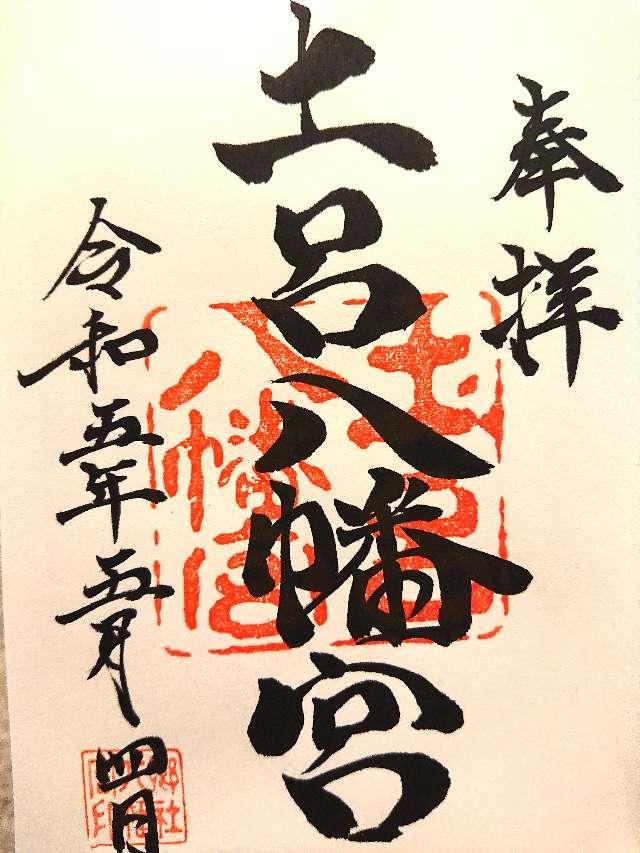 奉拝
土呂八幡宮
土呂八幡宮
令和五年五月四日